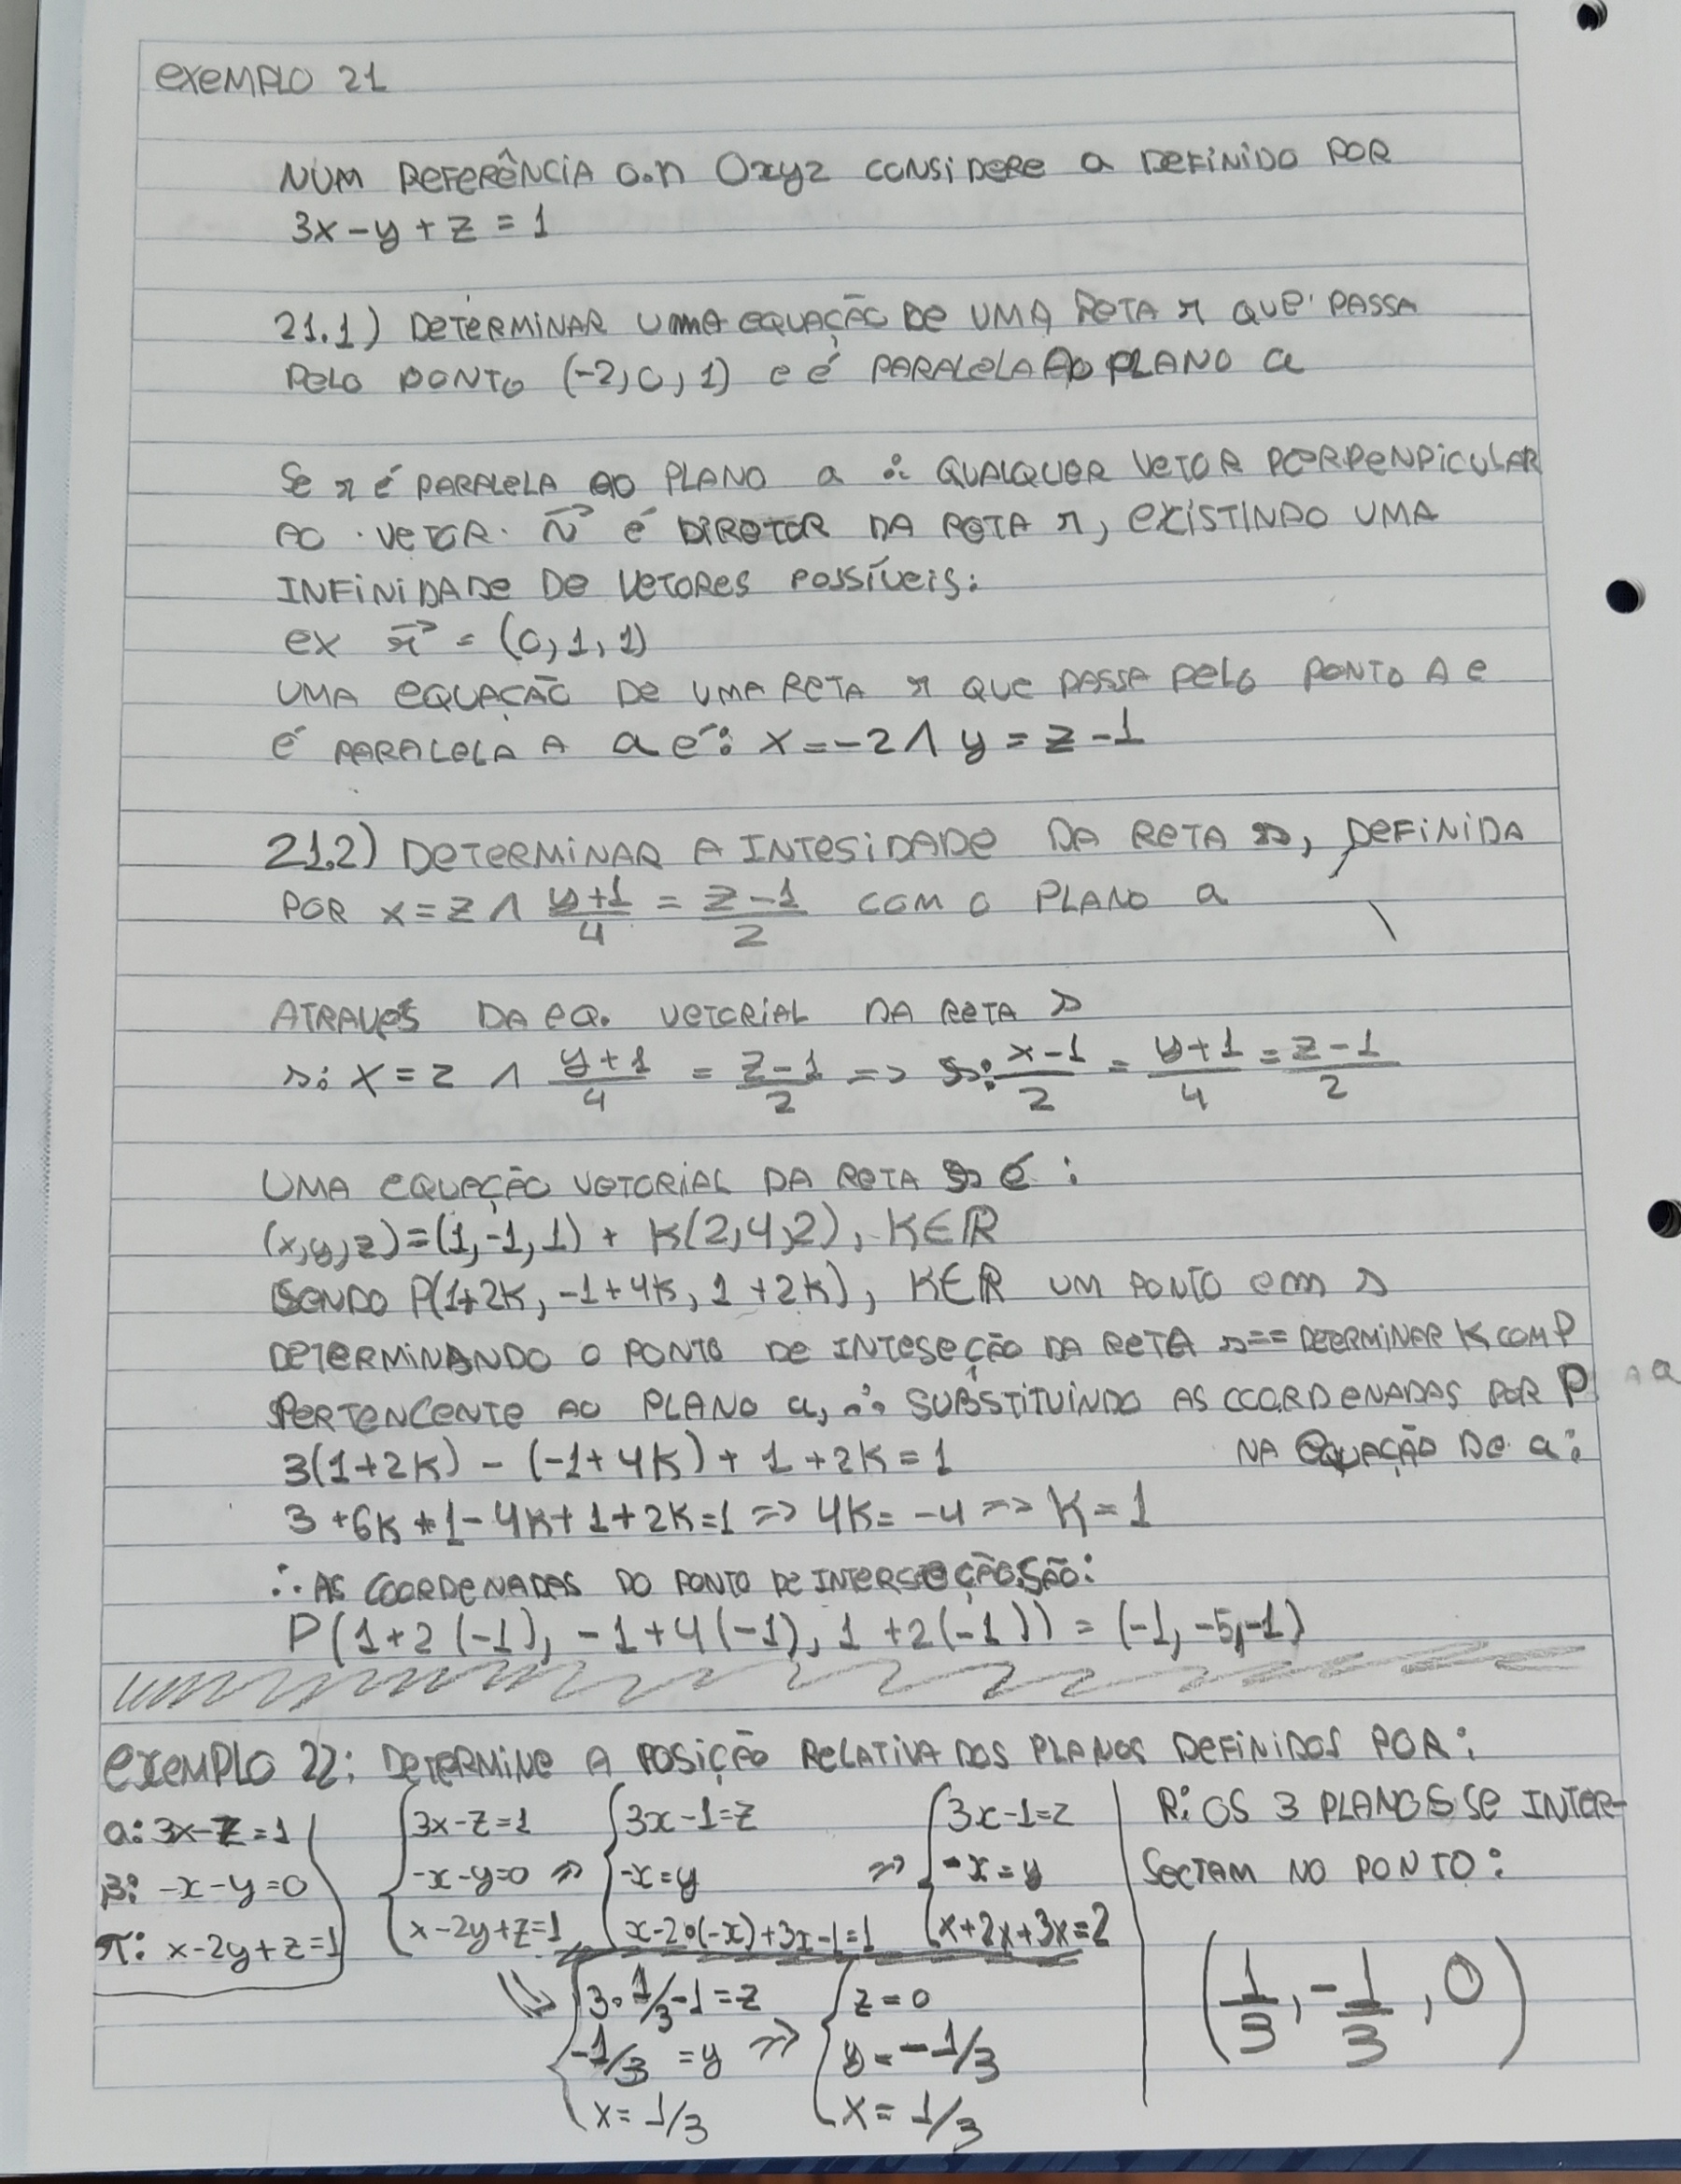 exemplo 21
NUM REFERÊNCIA o.n Oxyz CONSIDERE a DEFINIDO POR
3x-y+z=1
21.1) DETERMINAR UMA EQUAÇÃO DE UMA RETA r QUE PASSA
PELO PONTO (-2,0,1) e é PARALELA AO PLANO a
Se r é PARALELA AO PLANO a ∴ QUALQUER VETOR PERPENDICULAR
AO VETOR n⃗ é DIRETOR DA RETA r, EXISTINDO UMA
INFINIDADE DE VETORES POSSÍVEIS:
ex r⃗ = (0,1,1)
UMA EQUAÇÃO DE UMA RETA r QUE PASSA PELO PONTO A e
É PARALELA A a é: x=-2 ∧ y=z-1
21.2) DETERMINAR A INTESIDADE DA RETA s, DEFINIDA
POR x=z ∧ (y+1)/4 = (z-1)/2 COM O PLANO a
ATRAVÉS DA EQ. VETORIAL DA RETA s
s: x=z ∧ (y+1)/4 = (z-1)/2 => s: (x-1)/2 = (y+1)/4 = (z-1)/2
UMA EQUAÇÃO VETORIAL DA RETA s é:
(x,y,z)=(1,-1,1) + K(2,4,2), K∈ℝ
SENDO P(1+2K, -1+4K, 1+2K), K∈ℝ UM PONTO em s
DETERMINANDO O PONTO DE INTESEÇÃO DA RETA s == DETERMINAR K COM P
PERTENCENTE AO PLANO a, ∴ SUBSTITUINDO AS COORDENADAS POR P
NA EQUAÇÃO DE a:
3(1+2K) - (-1+4K) + 1 + 2K = 1
3+6K+1-4K+1+2K=1 => 4K=-4 => K=1
∴ AS COORDENADAS DO PONTO DE INTERSEÇÃO SÃO:
P(1+2(-1), -1+4(-1), 1+2(-1)) = (-1,-5,-1)
exemplo 22: DETERMINE A POSIÇÃO RELATIVA DOS PLANOS DEFINIDOS POR:
a: 3x-z=1 {3x-z=1 {3x-1=z {3x-1=z
β: -x-y=0 -x-y=0 => -x=y => -x=y
π: x-2y+z=1 x-2y+z=1 x-2•(-x)+3x-1=1 x+2x+3x=2
=> {3•1/3-1=z => {z=0
-1/3=y y=-1/3
x=1/3 x=1/3
R: OS 3 PLANOS SE INTER-
SECTAM NO PONTO:
(1/3, -1/3, 0)